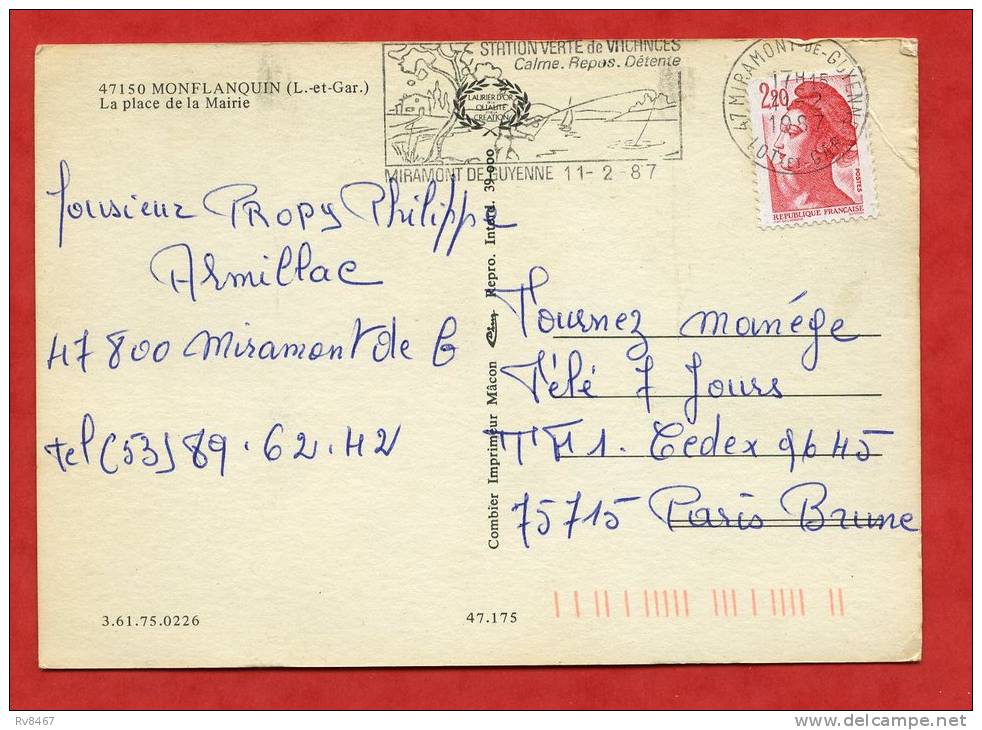 47150 MONFLANQUIN (L.-et-Gar.)
La place de la Mairie
STATION VERTE de VACANCES
Calme. Repos. Détente
LAURIER D'OR
QUALITÉ
CRÉATION
MIRAMONT DE GUYENNE 11-2-87
47 MIRAMONT-DE-GUYENNE
17H15
1987
LOT-ET-GAR.
2,20
POSTES
REPUBLIQUE FRANÇAISE
Monsieur PROPY Philippe
Armillac
47 800 Miramont de G
tel (53) 89.62.42
Combier Imprimeur Mâcon Cim Repro. Interd. 39.000
Tournez manége
Télé 7 Jours
TF1. Cedex 9645
75715 Paris Brune
3.61.75.0226
47.175
Rv8467
delcampe.net